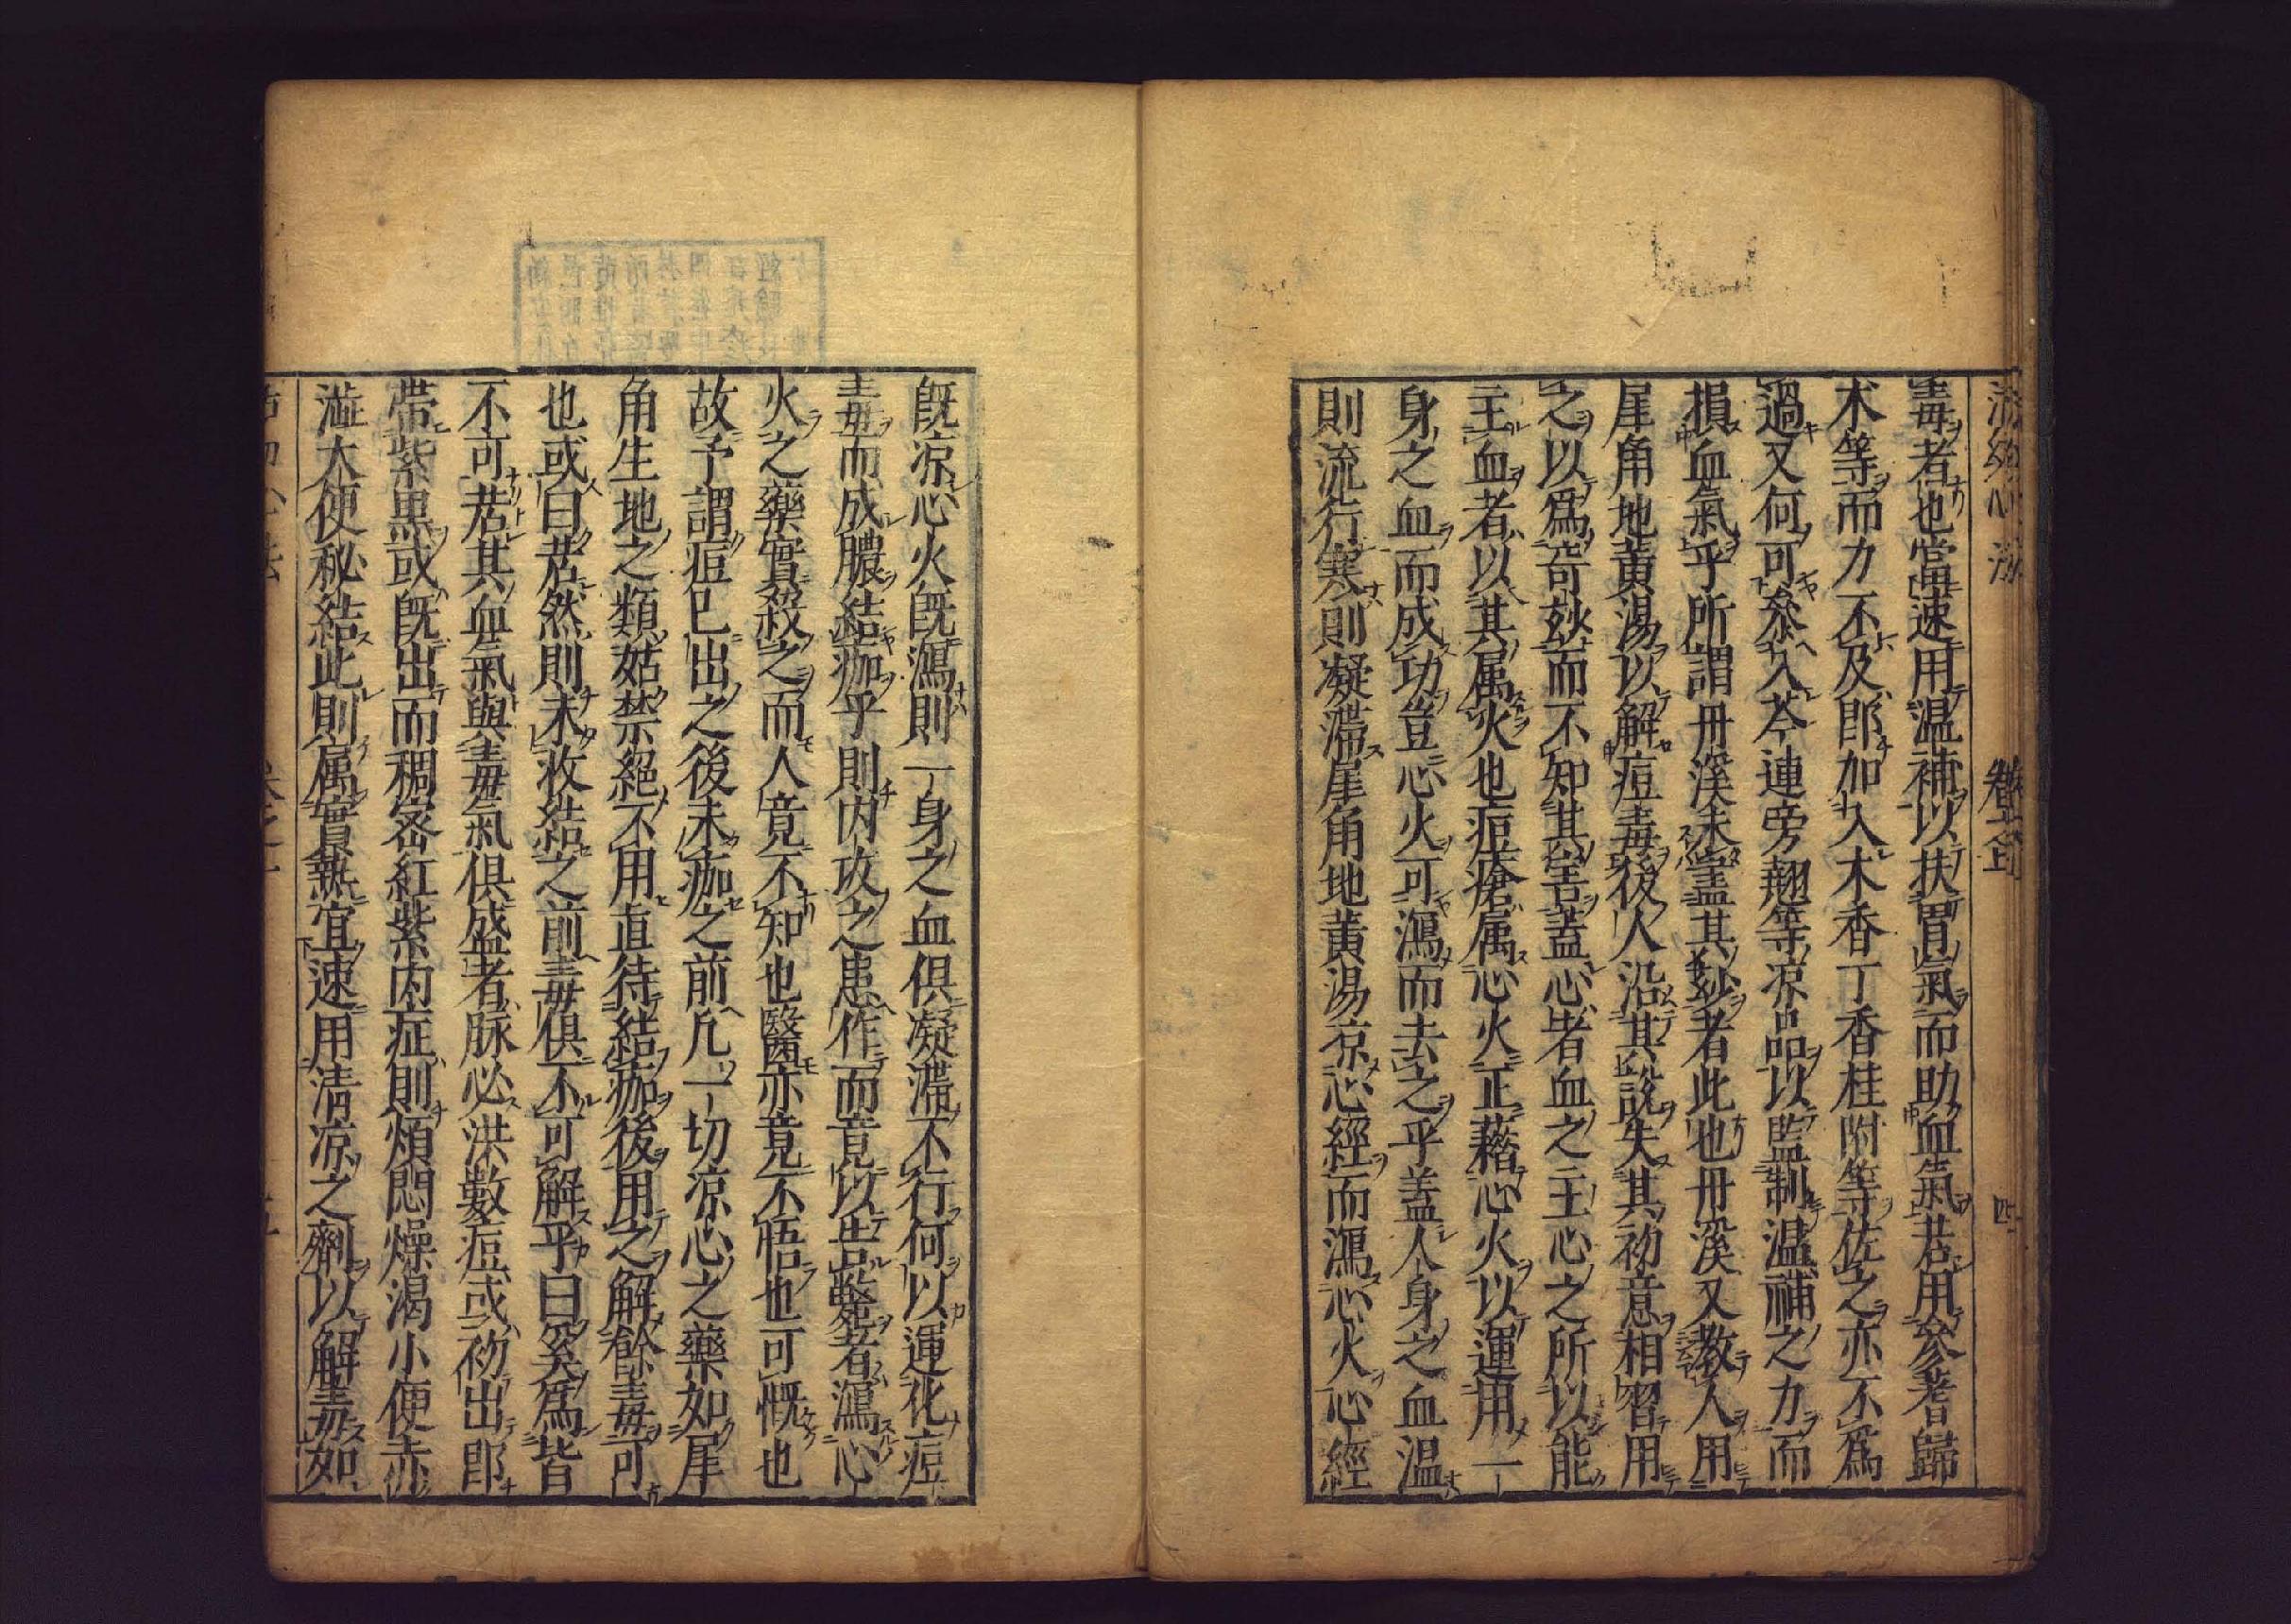 毒者也當速用温補以扶胃氣而助血氣若用參蓍歸
术等而力不及郎加入木香丁香桂附等佐之亦不爲
過又何可叅入芩連旁翹等凉品以監制温補之力而
損血氣乎所謂丹溪未盡其玅者此也丹溪又教人用
犀角地黄湯以解痘毒後人沿其說失其初意相習用
之以爲竒玅而不知其害蓋心者血之主心之所以能
主血者以其属火也痘瘡属心火正藉心火以運用一
身之血而成功豈心火可瀉而去之乎蓋人身之血温
則流行寒則凝滯犀角地黄湯凉心經而瀉心火心經
既凉心火既瀉則一身之血俱凝滯不行何以運化痘
毒而成膿結痂乎則内攻之患作而竟以告斃者瀉心
火之藥實殺之而人竟不知也醫亦竟不悟也可慨也
故予謂痘已出之後未痂之前凢一切凉心之藥如犀
角生地之類姑禁絕不用直待結痂後用之解餘毒可
也或曰若然則未收結之前毒俱不可解乎曰奚爲皆
不可若其血氣與毒氣俱盛者脉必洪數痘或初出郎
帶紫黒或既出而稠宻紅紫内症則煩悶燥渴小便赤
澁大便秘結此則属實熱宜速用清凉之劑以解毒如